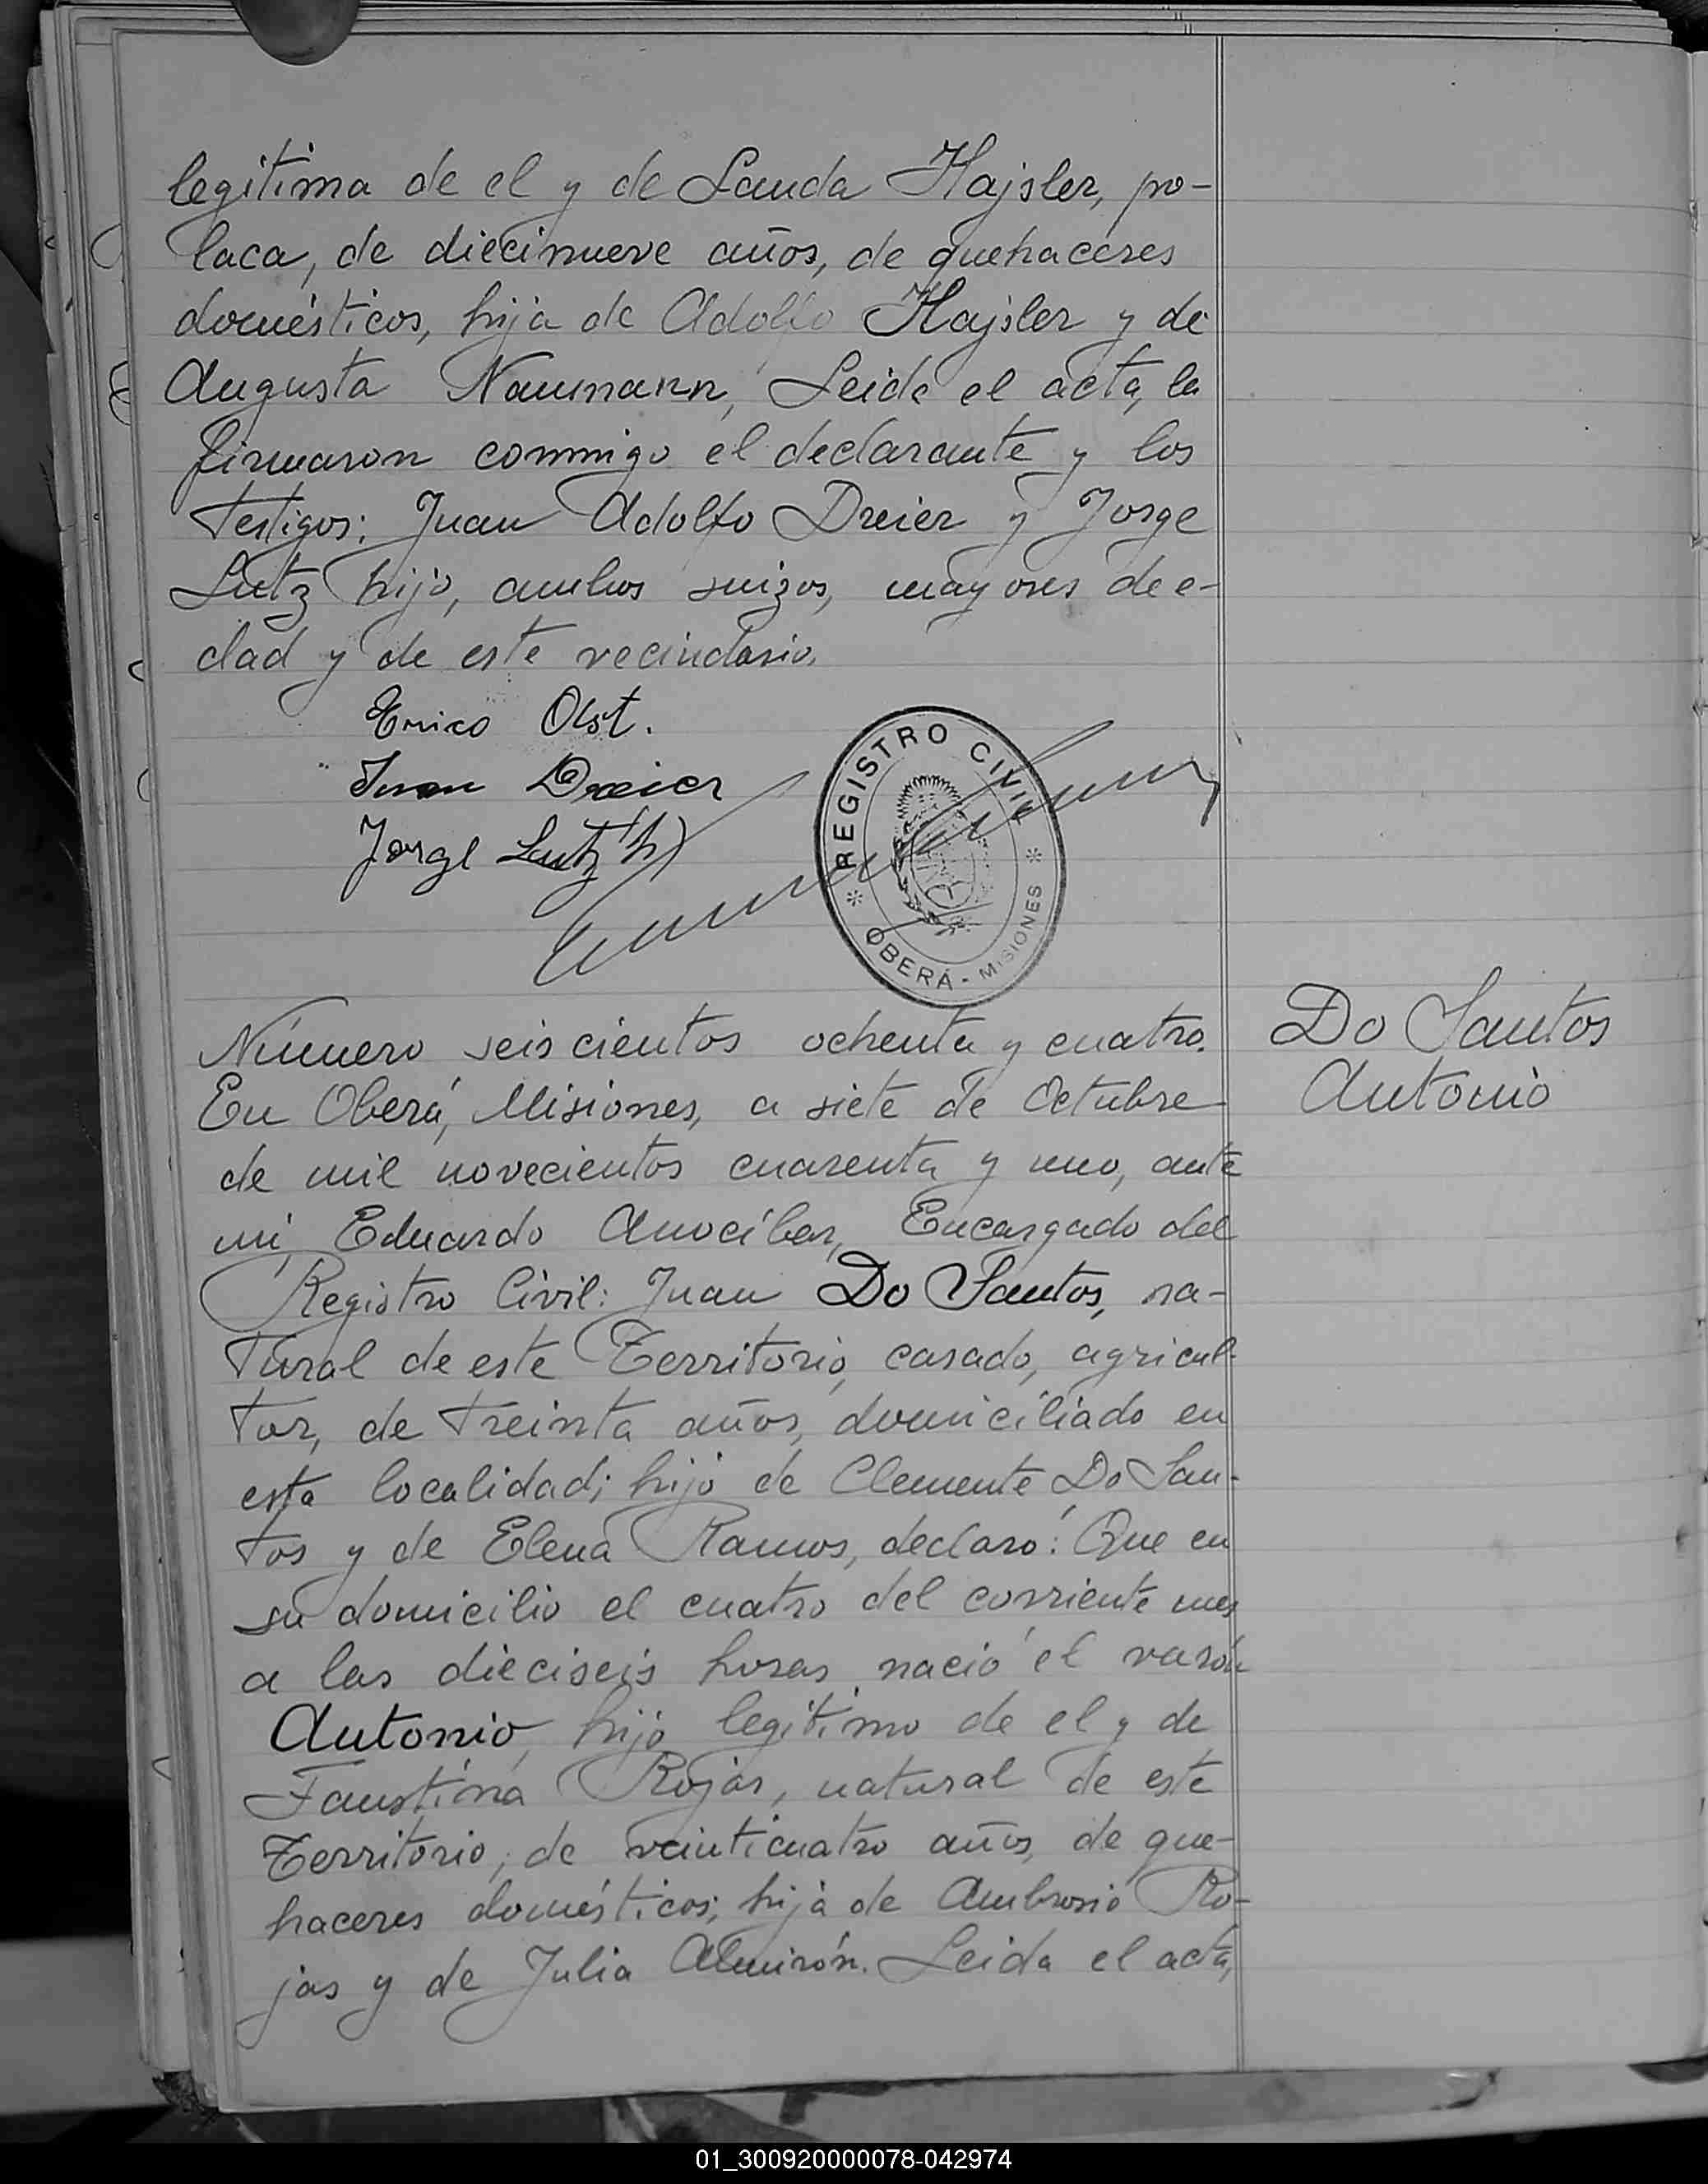 legitima de el y de Landa Hajsler, po-
laca, de diecinueve años, de quehaceres
domésticos, hija de Adolfo Hajsler y de
Augusta Naumann, Leida el acta, la
firmaron conmigo el declarante y los
testigos: Juan Adolfo Dreier y Jorge
Lutz hijo, ambos suizos, mayores de e-
dad y de este vecindario.
Erico Olst.
Juan Dreier
Jorge Lutz (h)
REGISTRO CIVIL
OBERÁ - MISIONES
Número seiscientos ochenta y cuatro.
Do Santos
Antonio
En Oberá, Misiones, a siete de Octubre
de mil novecientos cuarenta y uno, ante
mi, Eduardo Anocíbar, Encargado del
Registro Civil: Juan Do Santos, na-
tural de este Territorio, casado, agricul-
tor, de treinta años, domiciliado en
esta localidad; hijo de Clemente Do San-
tos y de Elena Ramos, declaró: Que en
su domicilio el cuatro del corriente mes
a las dieciseis horas nació el varón
Antonio, hijo legítimo de el y de
Faustina Rojas, natural de este
Territorio, de veinticuatro años, de que-
haceres domésticos; hija de Ambrosio Ro-
jas y de Julia Almirón. Leida el acta,
01_300920000078-042974